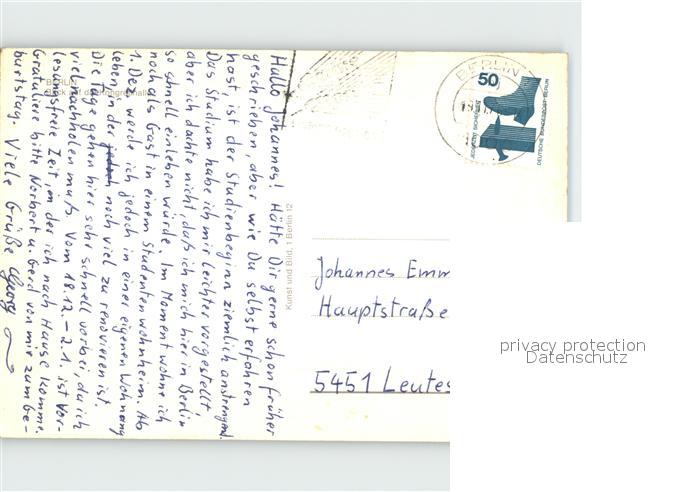 Hallo Johannes! Hätte Dir gerne schon früher
geschrieben, aber wie Du selbst erfahren
hast, ist der Studienbeginn ziemlich anstrengend.
Das Studium habe ich mir leichter vorgestellt,
aber ich dachte nicht, daß ich mich hier in Berlin
so schnell einleben würde. Im Moment wohne ich
noch als Gast in einem Studentenwohnheim. Ab
1. Dez. werde ich jedoch in einer eigenen Wohnung
leben, in der noch viel zu renovieren ist.
Die Tage gehen hier sehr schnell vorbei, da ich
viel nachholen muß. Vom 18.12. – 2.1. ist Vor-
lesungsfreie Zeit, in der ich nach Hause komme.
Gratuliere bitte Norbert u. Gerd von mir zum Ge-
burtstag. Viele Grüße Georg
BERLIN
Kunst und Bild, 1 Berlin 12
BERLIN
50
JEDERZEIT SICHERHEIT
DEUTSCHE BUNDESPOST BERLIN
Johannes Emm
Hauptstraße
5451 Leutes
privacy protection
Datenschutz